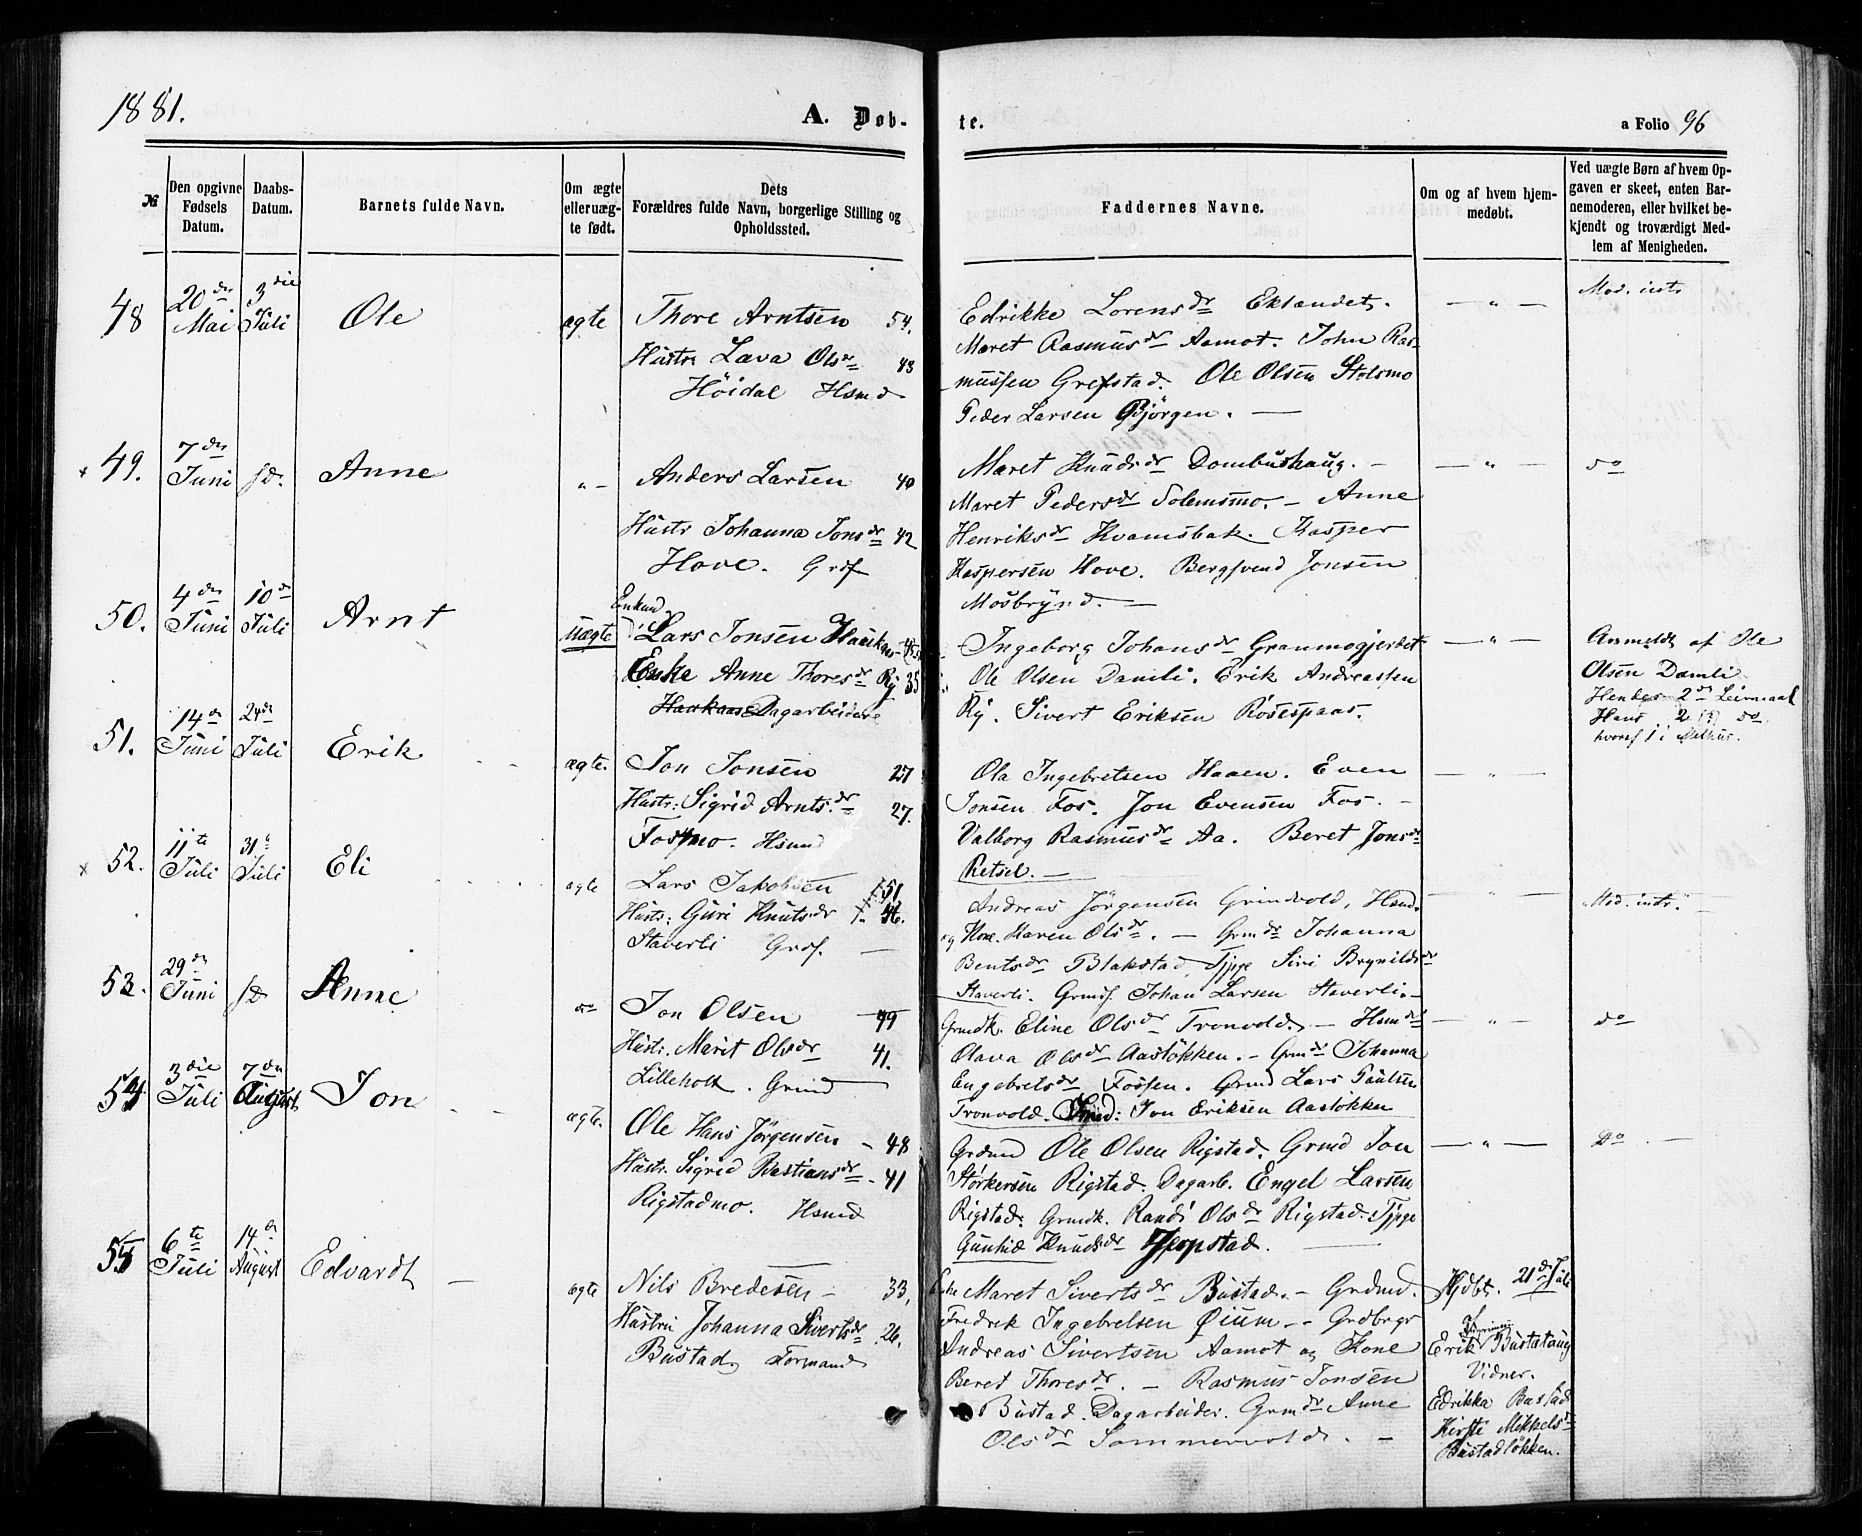 1881.
A. Døb-
te.
a Folio 96
№
Den opgivne Fødsels Datum.
Daabs-Datum.
Barnets fulde Navn.
Om ægte eller uægte født.
Dets Forældres fulde Navn, borgerlige Stilling og Opholdssted.
Faddernes Navne.
Om og af hvem hjemmedøbt.
Ved uægte Børn af hvem Opgaven er skeet, enten Barnemoderen, eller hvilket bekjendt og troværdigt Medlem af Menigheden.
48
20de Mai
3die Juli
Ole
ægte
Thore Arntsen 54.
Hustr. Lava Olsdr 43
Höidal Hsmd
Edrikke Lorensdr Eklandet.
Maret Rasmusdr Aamot. John Ras-
mussen Grefstad. Ole Olsen Stolsmo
Peder Larsen Bjørgen. —
— " —
Mod. intr
× 49.
7de Juni
sd.
Anne
" —
Anders Larsen 40
Hustr Johanna Jonsdr 42
Hove. Grdf
Maret Knudsdr Dombushaug. —
Maret Pedersdr Solemsmo. — Anne
Henriksdr Kvamsbak. Kasper
Kaspersen Hove. Bergsvend Jonsen
Mosbrynd. —
— " —
do
50.
4de Juni
10de Juli
Arnt
uægte
Enkmd
Lars Jonsen Haukaas
Enke Anne Thoresdr Ry 35
Haukaas Dagarbeidere
Ingeborg Johansdr Granmogjerdet
Ole Olsen Damli. Erik Andreassen
Ry. Sivert Eriksen Rosespaas.
— " —
Anmeldt af Ole
Olsen Damli.
Hendes 2de Leirmaal
Hans 2 (?) do
hvoraf 1 i Melhus.
51.
14de Juni
24de Juli
Erik
ægte.
Jon Jonsen 27
Hustr: Sigrid Arntsdr 27.
Fossmo. Hsmd
Ola Ingebretsen Haaen. Even
Jonsen Fos. Jon Evensen Fos. —
Valborg Rasmusdr Aa. Beret Jonsdr
Retsel. —
— " —
× 52.
11te Juli
31te Juli
Eli
ægte
Lars Jakobsen 51
Hustr: Guri Knutsdr 46.
Staverli Grdf. —
Andreas Jörgensen Grindvold, Hsmd.
og Kone Karen Olsdr. — Grmdr Johanna
Bentsdr Blakstad, Tjpge Siri Brynildsdr
Staverli. Grmds. Johan Larsen Staverli. —
— " —
Mod. intr. —
53.
29de Juni
sd
Anne
do
Jon Olsen 49
Hustr. Marit Olsdr 41.
Lilleholt. Grmd
Grmdk. Eline Olsdr Tronvold. — Hsmdr
Olava Olsdr Aaslökken. — Grmdr Johanna
Engebretsdr Fossen. Grmd Lars Paulsen
Tronvold. Smed: Jon Eriksen Aaslökken
— " —
do
54
3die Juli
7de August
Jon
ægte.
Ole Hans Jörgensen — 48
Hustr. Sigrid Bastiansdr — 41
Rigstadmo. Hsmd
Grdmd Ole Olsen Rigstad. Grmd Jon
Störkersen Rigstad. Dagarb. Engel Larsen
Rigstad. Grmdk. Randi Olsdr Rigstad. Tjpge
Gunhild Knudsdr Jerpstad.
— " —
do. —
55
6te Juli
14de August
Edvardt —
ægte
Nils Bredesen — 33,
Hustru Johanna Sivertsdr 26.
Bustad, Formand
Enke Maret Sivertsdr Bustad. — Grdmd.
Fredrek Ingebrelsen Øium. — Grdbrgr
Andreas Sivertsen Aamot og Kone
Beret Thoresdr. — Rasmus Jonsen
Bustad. Dagarbeider. Grmdr Anne
Olsdr Sommervold. —
Hjdbt. 21de Juli
af
Erik Bustadhaug
Vidner.
Edrikka Bustad
Kirste Mikkelsdr
Bustadløkken.